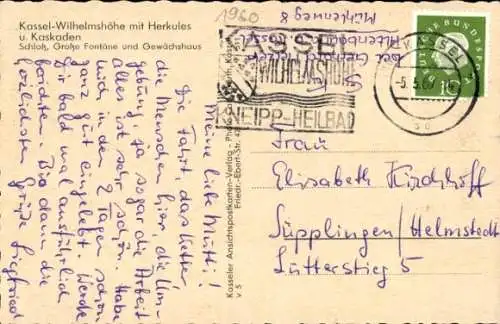 Kassel-Wilhelmshöhe mit Herkules
u. Kaskaden
Schloß, Große Fontäne und Gewächshaus
1960
Meine liebe Mutti!
Die Fahrt, das Wetter,
die Menschen hier, die Um-
gebung, ja sogar die Arbeit
alles ist sehr schön. Habe
mich in den 2 Tagen schon
ganz gut eingelebt. Werde
Dir bald mal ausführlich
berichten. Bis dann die
herzlichsten Grüße Siegfried
Kasseler Ansichtspostkarten-Verlag
Friedr.-Ebert-Str.
V 5
bei
Altenbauna
Mühlenweg 8
KASSEL
WILHELMSHÖHE
KNEIPP-HEILBAD
KASSEL
-5.5.60
DEUTSCHE BUNDESPOST
10
Frau
Elisabeth Kirchhoff
Süpplingen/Helmstedt
Lutterstieg 5